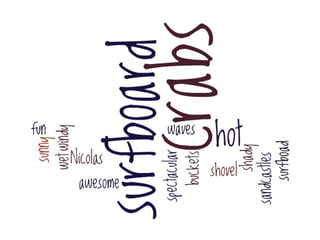 surfboard
Crabs
fun
sunny
wet
windy
Nicolas
awesome
waves
hot
spectacular
buckets
shovel
shady
sandcastles
surfboad